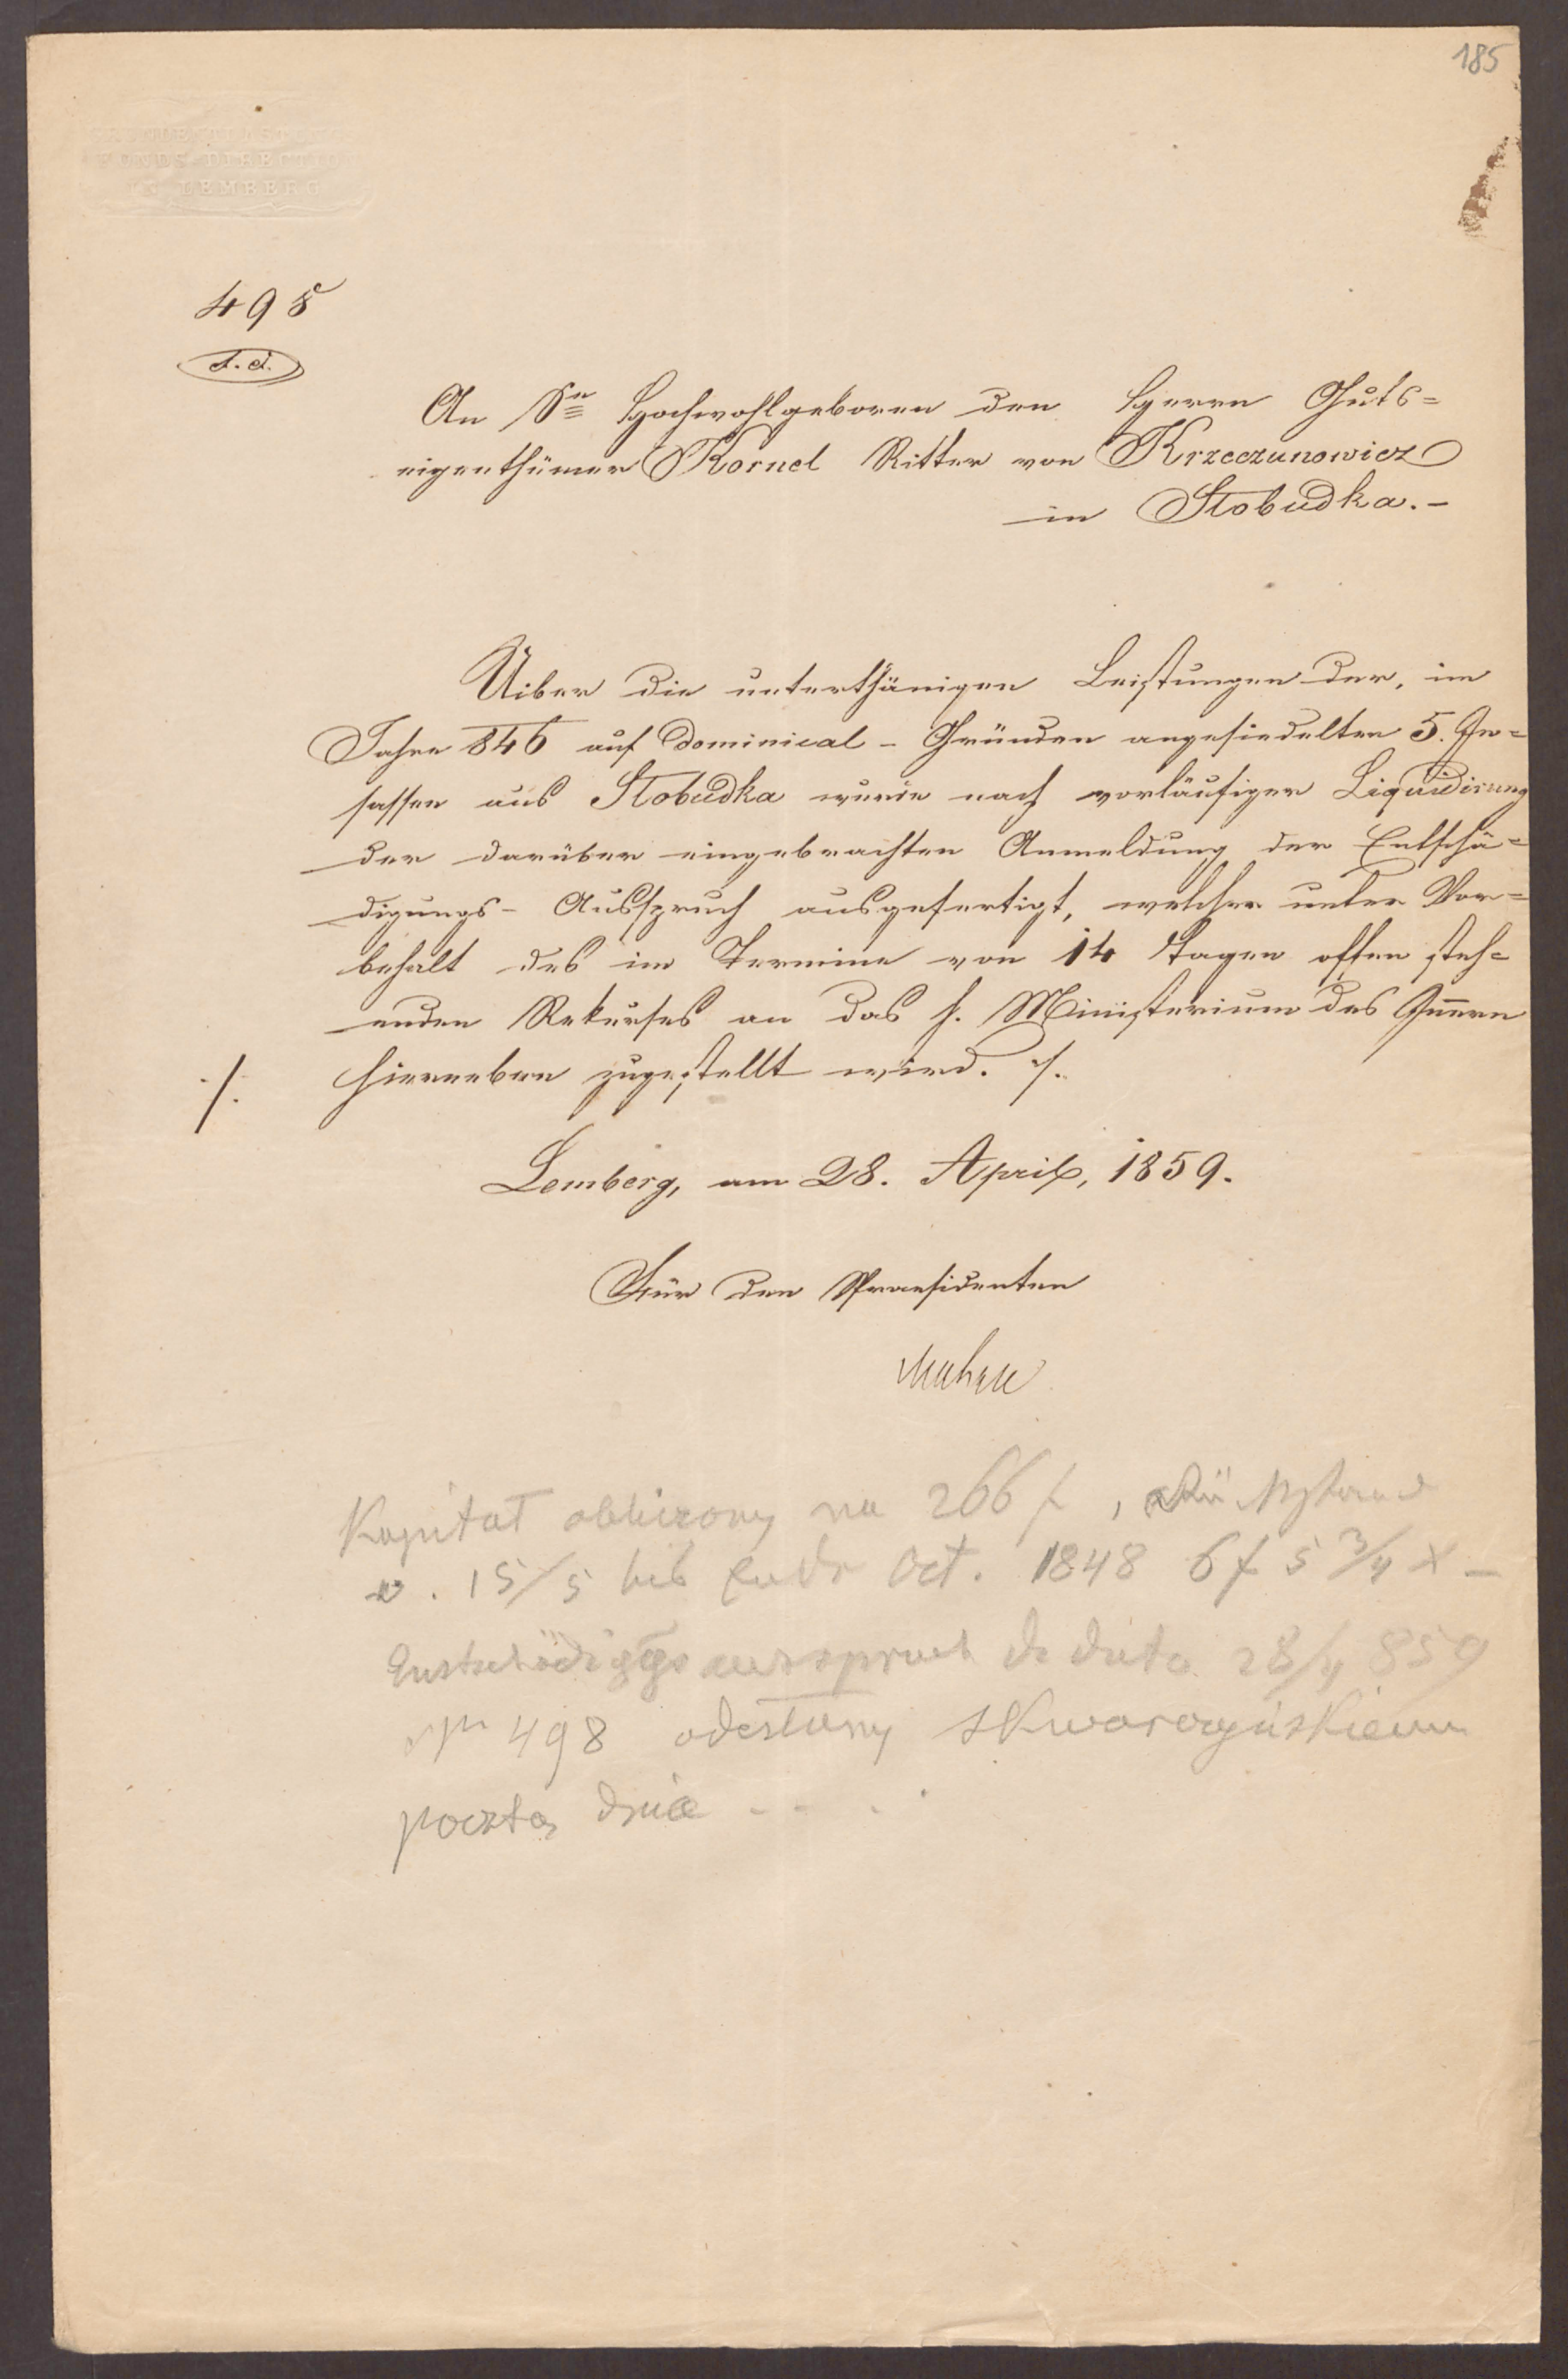 185
GRUNDENTLASTUNGS
FONDS-DIRECTION
IN LEMBERG
498
An Sr Hochwohlgeboren den Herrn Guts=
eigenthümer Kornel Ritter von Krzeczunowicz
in Stobudka.-
Uiber die unterthänigen Leistungen der, im
Jahre 846 auf dominical - Gründen angesiedelten 5. In=
sassen aus Stobudka wurde nach vorläufiger Liquidirung
der darüber eingebrachten Anmeldung der Entschä=
digungs- Ausspruch ausgefertigt, welcher unter Vor=
behalt des im Termine von 14 Tagen offen steh=
enden Rekurses an das h. Ministerium des Innern
./. hierneben zugestellt wird. ./.
Lemberg, am 28. April, 1859.
Für den Praesidenten
Kapitał obliczony na 266 f,
v. 15/5 bis Ende Oct. 1848 6 f 5 3/4 x -
Entschädiggs ausspruch de dato 28/4 859
Nr 498 odesłany
pocztą dnia - - . .